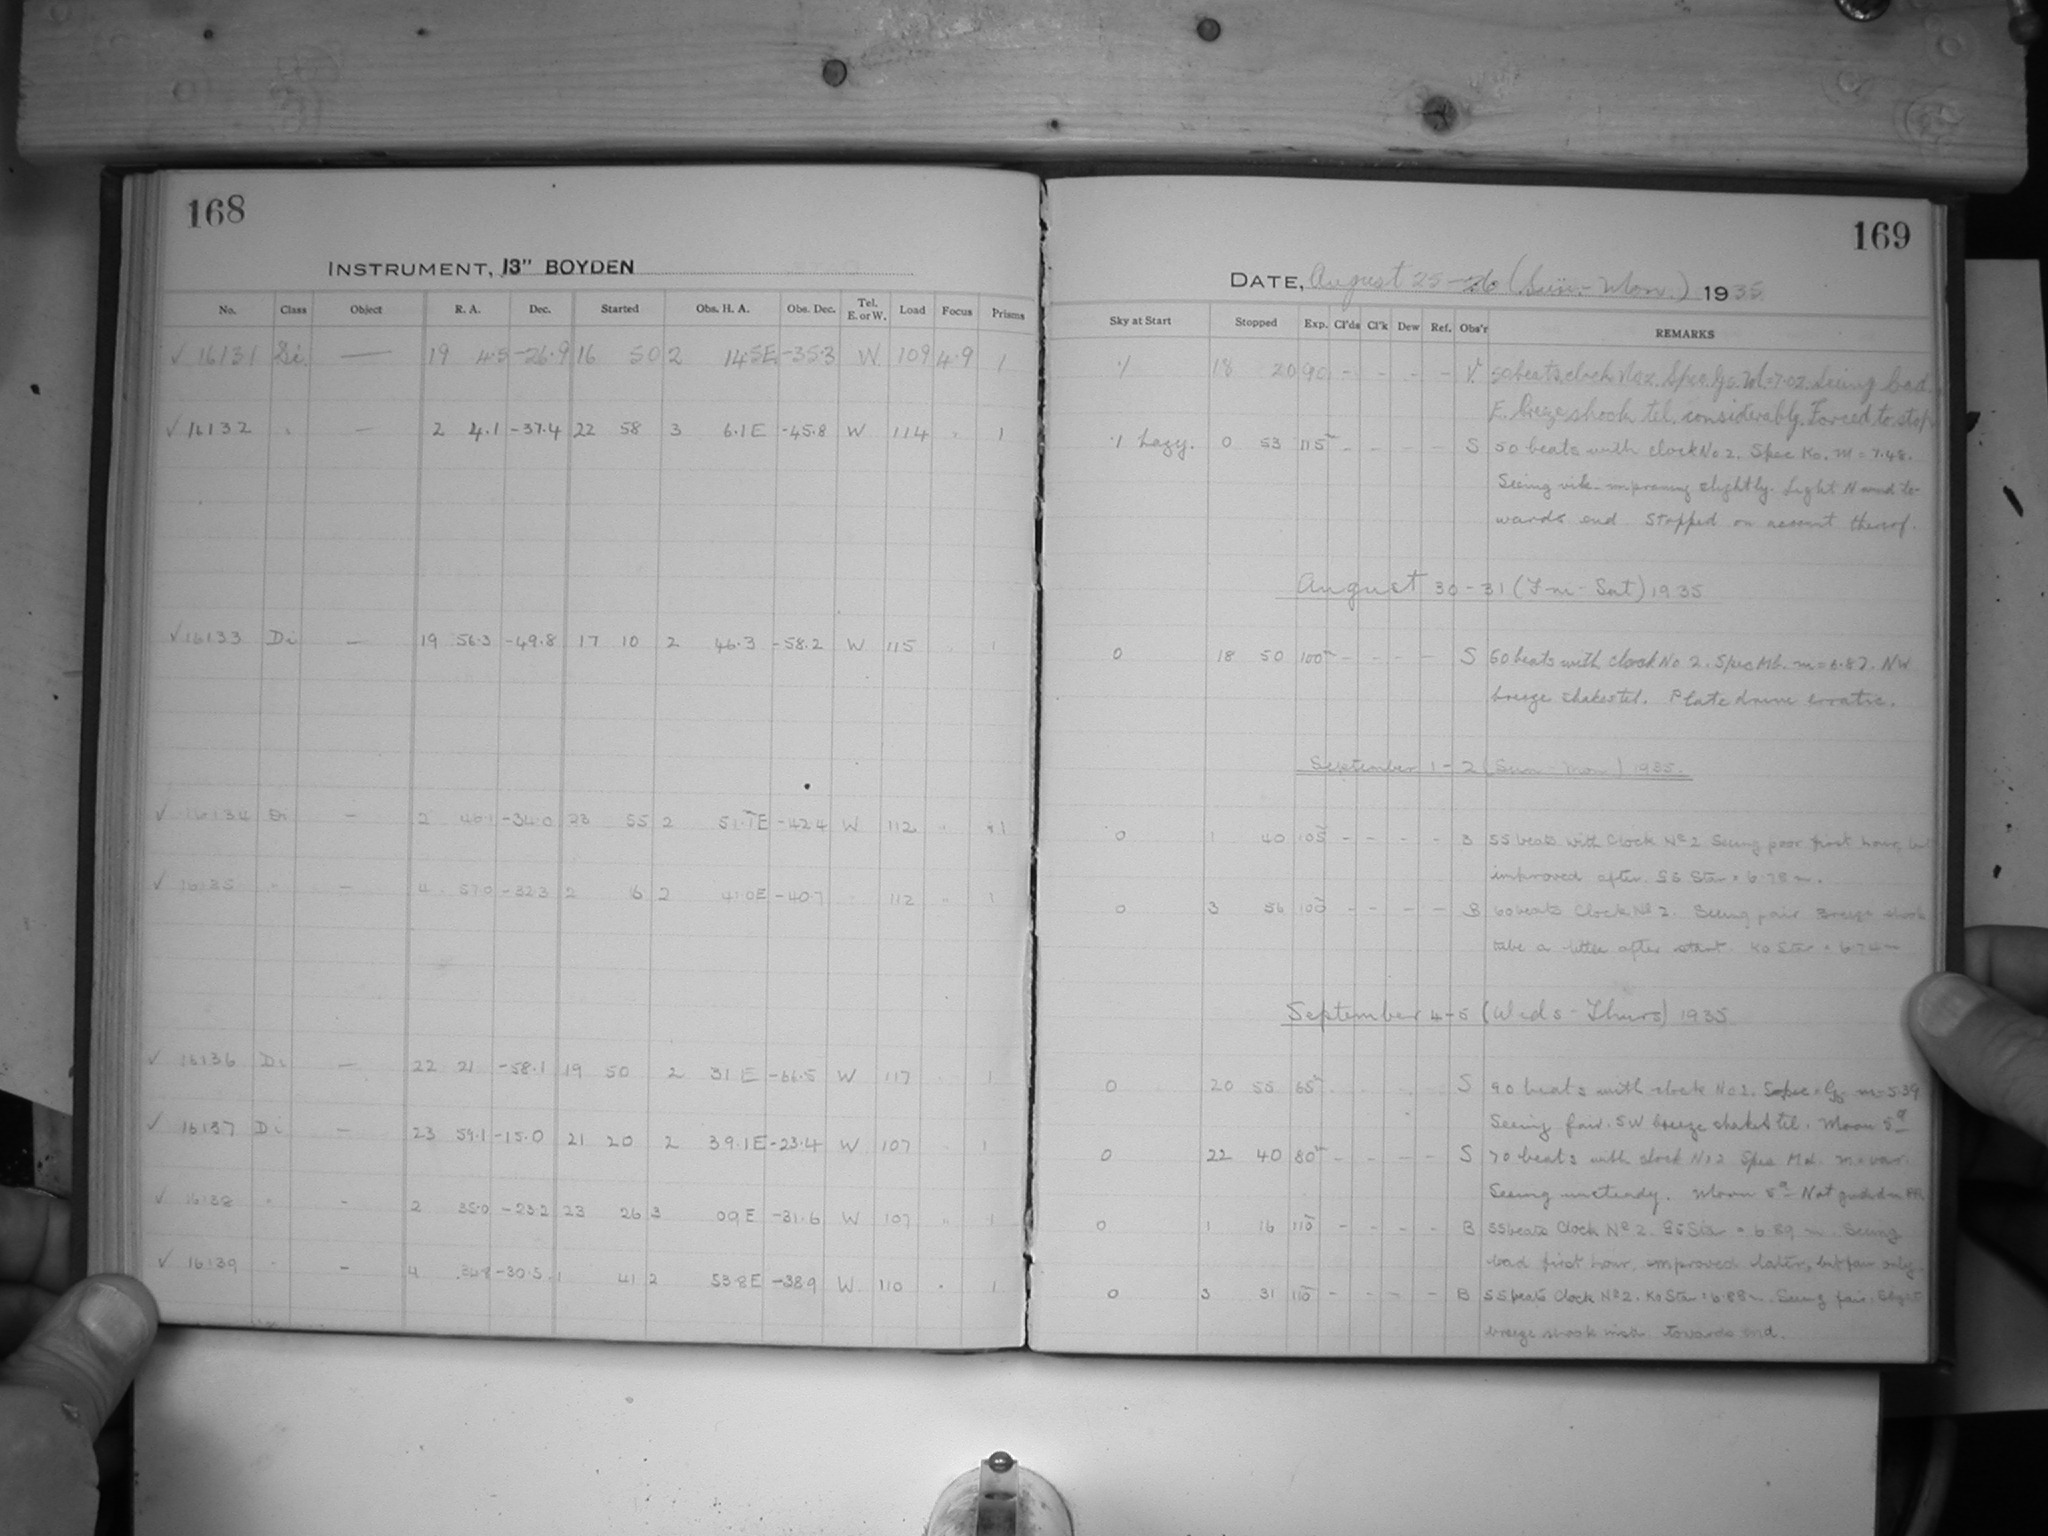 168
INSTRUMENT, 13" BOYDEN
No. Class Object R. A. Dec. Started Obs. H. A. Obs. Dec. Tel. E. or W. Load Focus Prisms
√ 16131 Di — 19 4.5 -26.9 16 50 2 14.5E -35.3 W 109 4.9 1
√ 16132 " — 2 4.1 -37.4 22 58 3 6.1E -45.8 W 114 " 1
√ 16133 Di — 19 56.3 -49.8 17 10 2 46.3 -58.2 W 115 1
√ 16134 Di — 2 46.1 -34.0 23 55 2 51.1E -42.4 W 112 " 1
√ 16135 " — 4 57.0 -32.3 2 16 2 41.0E -40.7 112 " 1
√ 16136 Di — 22 21 -58.1 19 50 2 31 E -66.5 W 117 1
√ 16137 Di — 23 59.1 -15.0 21 20 2 39.1E -23.4 W 107 1
√ 16138 " - 2 35.0 -23.2 23 26 3 09E -31.6 W 107 " 1
√ 16139 " - 4 -30.5 1 41 2 53.8E -38.9 W 110 " 1
169
DATE, August 25-26 (Sun.-Mon.) 1935
Sky at Start Stopped Exp. Cl'ds Cl'k Dew Ref. Obs'r REMARKS
·/ 18 20 90 - - - - V 50 beats clock No 2. Spec. M=7.02. Seeing bad.
E. breeze shook tel. considerably. Forced to stop
·/ hazy. 0 53 115m - - - - S 50 beats with clock No 2. Spec Ko. m = 7.48.
Seeing vile - improving slightly. Light N wind to-
wards end. Stopped on account thereof.
August 30-31 (Fri-Sat) 1935
0 18 50 100m - - - - S 60 beats with clock No 2. Spec Mb. m = 6.87. NW
breeze shakes tel. Plate drive erratic.
September 1-2 (Sun-Mon) 1935.
0 1 40 105 - - - - B 55 beats with Clock No 2 Seeing poor first hour, but
improved after. G5 Star = 6.78 m.
0 3 56 100 - - - - B 60 beats Clock No 2. Seeing fair Breeze shook
tube a little after start. Ko Star = 6.74 m
September 4-5 (Weds-Thurs) 1935
0 20 55 65m S 90 beats with clock No 2. Spec = m = 5.39
Seeing fair. SW breeze shakes tel. Moon 5d
0 22 40 80m - - - - S 70 beats with clock No 2 Spec Md. m = var.
Seeing unsteady. Moon 5d Not guided in
0 1 16 110 - - - - B 55 beats Clock No 2. G5 Star = 6.89 m. Seeing
bad first hour, improved later, but fair only.
0 3 31 110 - - - - B 55 beats Clock No 2. Ko Star = 6.88 m. Seeing fair. Slight
breeze shook towards end.